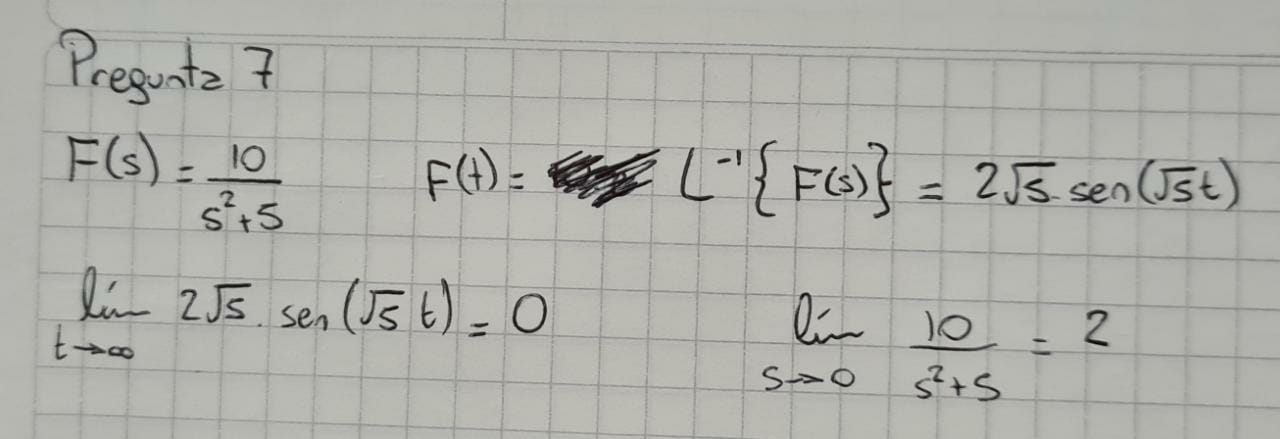 Pregunta 7
F(s) = 10/(s²+5) F(t) = L⁻¹{F(s)} = 2√5 · sen(√5t)
lím t→∞ 2√5 · sen(√5 t) = 0 lím s→0 10/(s²+5) = 2